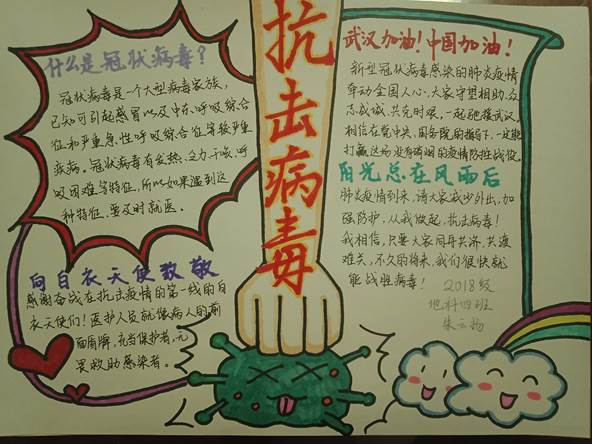 什么是冠状病毒？
冠状病毒是一个大型病毒家族，
已知可引起感冒以及中东呼吸综合
征和严重急性呼吸综合征等较严重
疾病。冠状病毒有发热、乏力、干咳、呼
吸困难等特征，所以如果遇到这
种特征，要及时就医。
向白衣天使致敬
感谢奋战在抗击疫情的第一线的白
衣天使们！医护人员就像病人的前
面盾牌，充当保护者，无
畏救助感染者。
抗击病毒
武汉加油！中国加油！
新型冠状病毒感染的肺炎疫情
牵动全国人心，大家守望相助、众
志成城、共克时艰，一起驰援武汉。
相信在党中央、国务院的指导下，一定能
打赢这场没有硝烟的疫情防控战役。
阳光总在风雨后
肺炎疫情到来，请大家减少外出，加
强防护，从我做起，抗击病毒！
我相信，只要大家同舟共济，共渡
难关，不久的将来，我们很快就
能战胜病毒！
2018级
地科四班
朱云